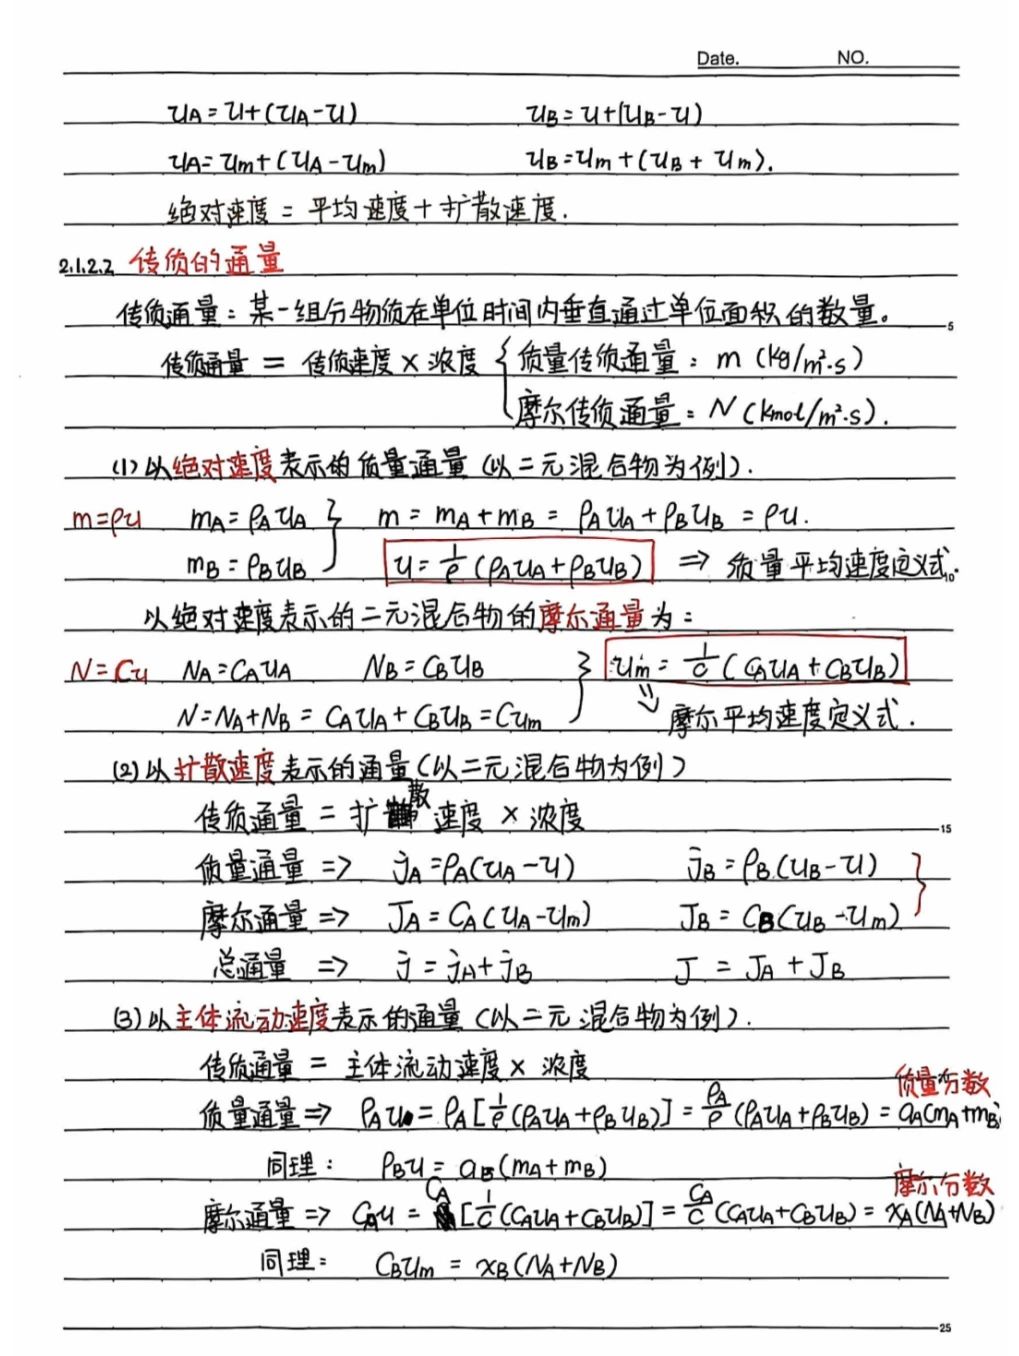 Date. NO.
u_A = u+(u_A-u) u_B = u+(u_B-u)
u_A = u_m+(u_A-u_m) u_B = u_m+(u_B+u_m).
绝对速度 = 平均速度+扩散速度.
2.1.2.2 传质的通量
传质通量：某一组分物质在单位时间内垂直通过单位面积的数量。 5
传质通量 = 传质速度×浓度 { 质量传质通量：m (kg/m²·s)
摩尔传质通量：N (kmol/m²·s).
(1) 以绝对速度表示的质量通量 (以二元混合物为例).
m=ρu m_A = ρ_A u_A } m = m_A+m_B = ρ_A u_A+ρ_B u_B = ρu.
m_B = ρ_B u_B u = 1/ρ (ρ_A u_A+ρ_B u_B) ⇒ 质量平均速度定义式. 10
以绝对速度表示的二元混合物的摩尔通量为：
N=Cu N_A=C_A u_A N_B = C_B u_B } u_m = 1/C (C_A u_A+C_B u_B)
N=N_A+N_B = C_A u_A+C_B u_B = C u_m ⇓ 摩尔平均速度定义式.
(2) 以扩散速度表示的通量 (以二元混合物为例)
传质通量 = 扩散速度 × 浓度 15
质量通量 ⇒ j_A = ρ_A(u_A-u) j_B = ρ_B(u_B-u) }
摩尔通量 ⇒ J_A = C_A(u_A-u_m) J_B = C_B(u_B-u_m)
总通量 ⇒ j = j_A+j_B J = J_A+J_B
(3) 以主体流动速度表示的通量 (以二元混合物为例).
传质通量 = 主体流动速度 × 浓度
质量分数
质量通量 ⇒ ρ_A u = ρ_A[1/ρ(ρ_A u_A+ρ_B u_B)] = ρ_A/ρ (ρ_A u_A+ρ_B u_B) = a_A(m_A+m_B)
同理： ρ_B u = a_B(m_A+m_B)
摩尔分数
摩尔通量 ⇒ C_A u = C_A[1/C(C_A u_A+C_B u_B)] = C_A/C (C_A u_A+C_B u_B) = x_A(N_A+N_B)
同理： C_B u_m = x_B(N_A+N_B)
25